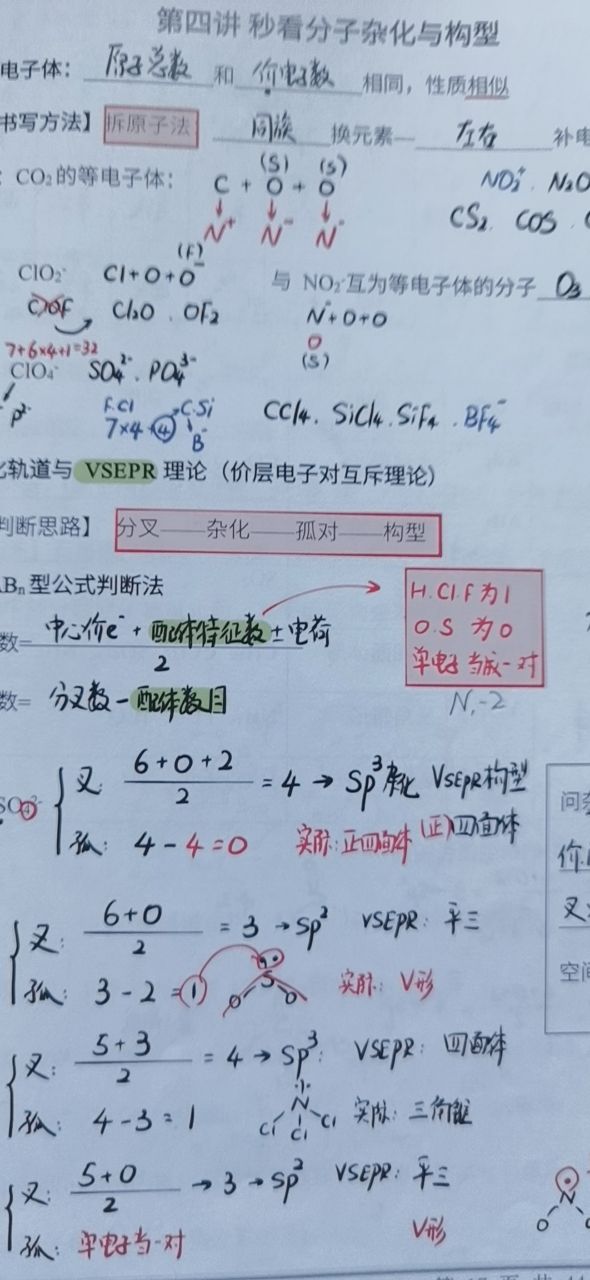 第四讲 秒看分子杂化与构型
电子体: 原子总数 和 价电子数 相同，性质相似
书写方法】 拆原子法 同族 换元素— 左右 补电
(S) (S)
: CO₂的等电子体: C + O + O NO₂⁺. N₂O
↓ ↓ ↓
N⁺ N⁻ N⁻ CS₂. COS
(F)
ClO₂⁻ Cl+O+O⁻ 与 NO₂⁻互为等电子体的分子 O₃
Cl₂O . OF₂ N+O+O
7+6×4+1=32 O
(S)
ClO₄⁻ SO₄²⁻. PO₄³⁻
P³⁻ F.Cl C.Si CCl₄. SiCl₄. SiF₄. BF₄⁻
7×4 + ④ B⁻
化轨道与 VSEPR 理论（价层电子对互斥理论）
判断思路】 分叉——杂化——孤对——构型
ABₙ型公式判断法
H.Cl.F为1
数= 中心价e⁻ + 配体特征数 ± 电荷 O.S 为0
2 单电子当成一对
数= 分叉数 - 配体数目 N,-2
SO₄²⁻ 叉: 6+0+2 / 2 = 4 → Sp³杂化 VSEPR构型
(正)四面体
孤: 4 - 4 = 0 实际:正四面体
问杂
价
叉
空间
叉: 6+0 / 2 = 3 → Sp² VSEPR: 平三
孤: 3 - 2 = 1 S O O 实际: V形
叉: 5+3 / 2 = 4 → Sp³: VSEPR: 四面体
孤: 4 - 3 = 1 N Cl Cl Cl 实际: 三角锥
叉: 5+0 / 2 → 3 → Sp² VSEPR: 平三
孤: 单电子当一对 V形 N O